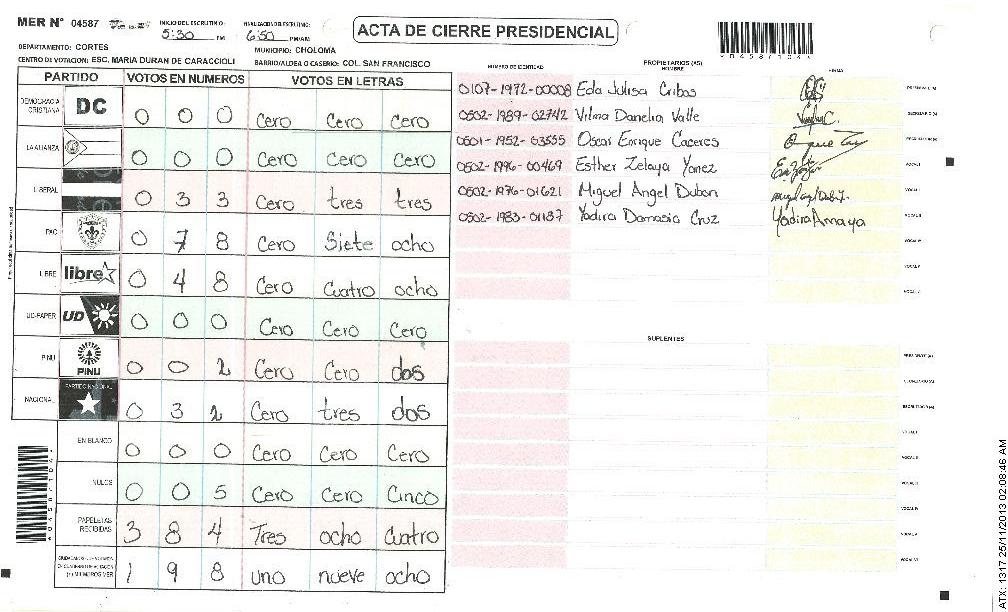 MER N° 04587 INICIO DEL ESCRUTINIO: 5:30 PM FINALIZACION ESCRUTINIO: 6:50 PM/AM
ACTA DE CIERRE PRESIDENCIAL
DEPARTAMENTO: CORTES MUNICIPIO: CHOLOMA
CENTRO DE VOTACION: ESC. MARIA DURAN DE CARACCIOLI BARRIO/ALDEA O CASERIO: COL. SAN FRANCISCO
PARTIDO VOTOS EN NUMEROS VOTOS EN LETRAS
DEMOCRACIA CRISTIANA DC 0 0 0 Cero Cero Cero
LA ALIANZA 0 0 0 Cero Cero Cero
LIBERAL 0 3 3 Cero tres tres
PAC 0 7 8 Cero Siete ocho
LIBRE libre 0 4 8 Cero Cuatro ocho
UD-FAPER UD 0 0 0 Cero Cero Cero
PINU PINU 0 0 2 Cero Cero dos
NACIONAL PARTIDO NACIONAL 0 3 2 Cero tres dos
EN BLANCO 0 0 0 Cero Cero Cero
NULOS 0 0 5 Cero Cero Cinco
PAPELETAS RECIBIDAS 3 8 4 Tres ocho Cuatro
1 9 8 uno nueve ocho
NUMERO DE IDENTIDAD PROPIETARIOS (AS) NOMBRE FIRMA
0107-1972-00008 Eda Julisa Cribas PRESIDENTE (A)
0502-1989-02742 Vilma Danelia Valle SECRETARIO (A)
0501-1952-03555 Oscar Enrique Caceres ESCRUTADOR (A)
0502-1996-00469 Esther Zelaya Yanez VOCAL I
0502-1976-01621 Miguel Angel Dubon VOCAL II
0502-1983-01187 Yadira Damasia Cruz Yadira Amaya VOCAL III
VOCAL IV
VOCAL V
SUPLENTES
PRESIDENTE (A)
SECRETARIO (A)
ESCRUTADOR (A)
VOCAL I
VOCAL II
VOCAL III
VOCAL IV
VOCAL V
ATX: 1317 25/11/2013 02:08:46 AM